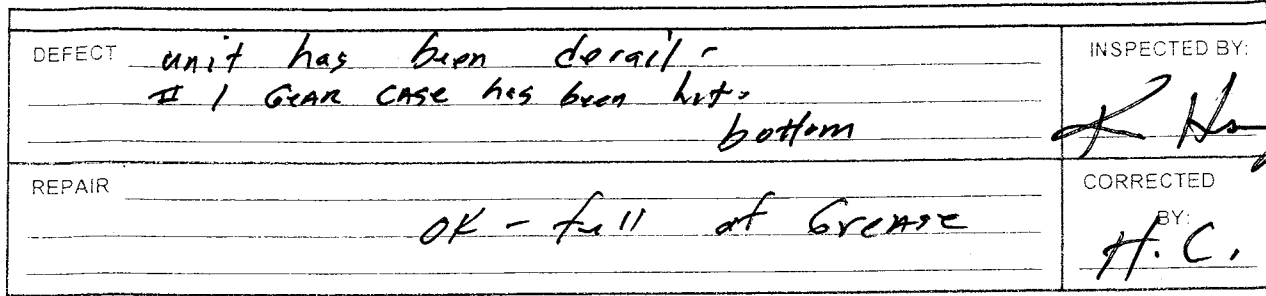 DEFECT unit has been derail-
# 1 GEAR CASE has been hit-
bottom
INSPECTED BY:
REPAIR
OK - full of Grease
CORRECTED
BY:
H. C.